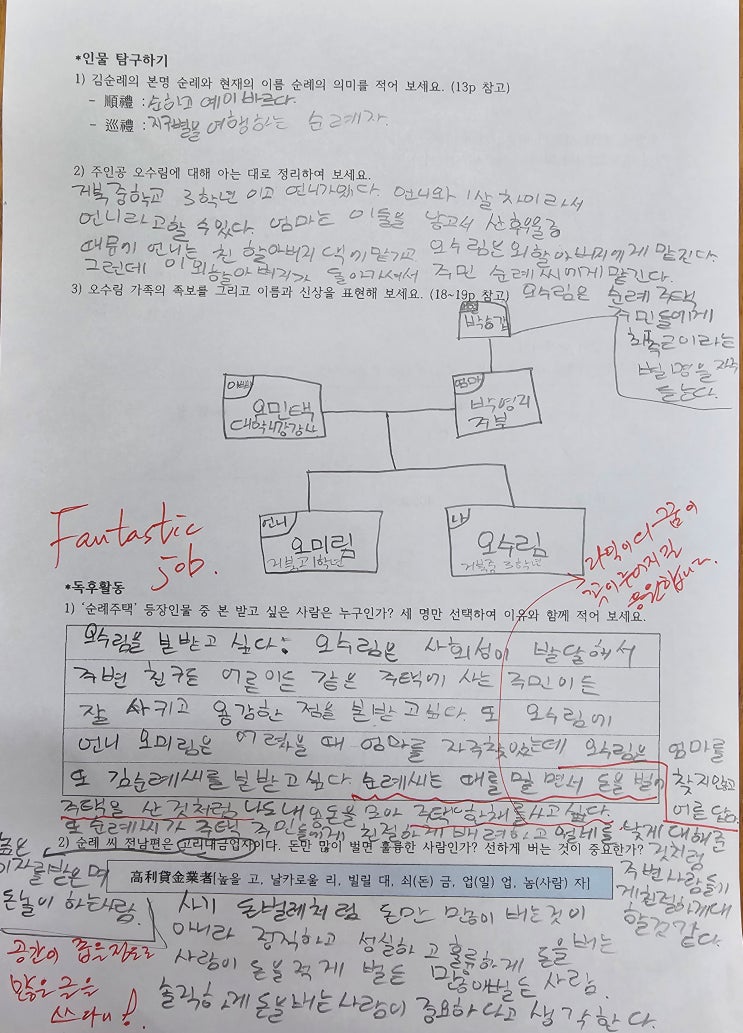 *인물 탐구하기
1) 김순례의 본명 순례와 현재의 이름 순례의 의미를 적어 보세요. (13p 참고)
- 順禮 : 순하고 예의바르다.
- 巡禮 : 지구별을 여행하는 순례자.
2) 주인공 오수림에 대해 아는 대로 정리하여 보세요.
거북 중학교 3학년 이고 언니가있다. 언니와 1살 차이라서
언니라고할 수있다. 엄마는 이둘을 낳고서 산후우울증
때뮤에 언니는 친 할아버지 댁에 맡기고 오수림은 외할아버지에게 맡긴다
그런데 이 외할아버지가 돌아가셔서 주민 순례씨에게 맡긴다.
3) 오수림 가족의 족보를 그리고 이름과 신상을 표현해 보세요. (18~19p 참고)
오수림은 순례 주택
주민들에게
최측근이라는
별명을 자주
듣는다.
박승갑
아빠
오민택
대학시간강사
엄마
박영지
주부
언니
오미림
거북고1학년
나
오수림
거북중 3학년
Fantastic
job.
라익이다 그꿈이
꼭 이루어지길
응원합니다.
*독후활동
1) '순례주택' 등장인물 중 본 받고 싶은 사람은 누구인가? 세 명만 선택하여 이유와 함께 적어 보세요.
오수림을 본받고 싶다: 오수림은 사회성이 발달해서
주변 친구든 어른이든 같은 주택에 사는 주민이든
잘 사귀고 용감한 점을 본받고싶다. 또 오수림에
언니 오미림은 어렸을 때 엄마를 자주찾았는데 오수림은 엄마를
찾지않고
어른 답다.
또 김순례씨를 본받고 싶다. 순례씨는 때를 밀 면서 돈을 벌어
주택을 산 것처럼 나도 내 돈을 모아 주택한채를사고 싶다.
또 순례씨가 주택 주민들에게 친절하게 배려하고 월세를 낮게 대해준
것처럼
주변 사람들에
게친절하게대
할것 같다.
2) 순례 씨 전남편은 고리대금업자이다. 돈만 많이 벌면 훌륭한 사람인가? 선하게 버는 것이 중요한가?
높은
이자를받으며
돈놀이 하는사람.
高利貸金業者[높을 고, 날카로울 리, 빌릴 대, 쇠(돈) 금, 업(일) 업, 놈(사람) 자]
사기 돈벌레처럼 돈만 많이 버는것이
아니라 정직하고 성실하고 훌륭하게 돈을버는
사람이 돈을 적게 벌든 많이벌든 사람.
솔직하게돈을버는사람이 중요하다고 생각한다
공간이 좁은정도로
많은 글을
쓰다니!